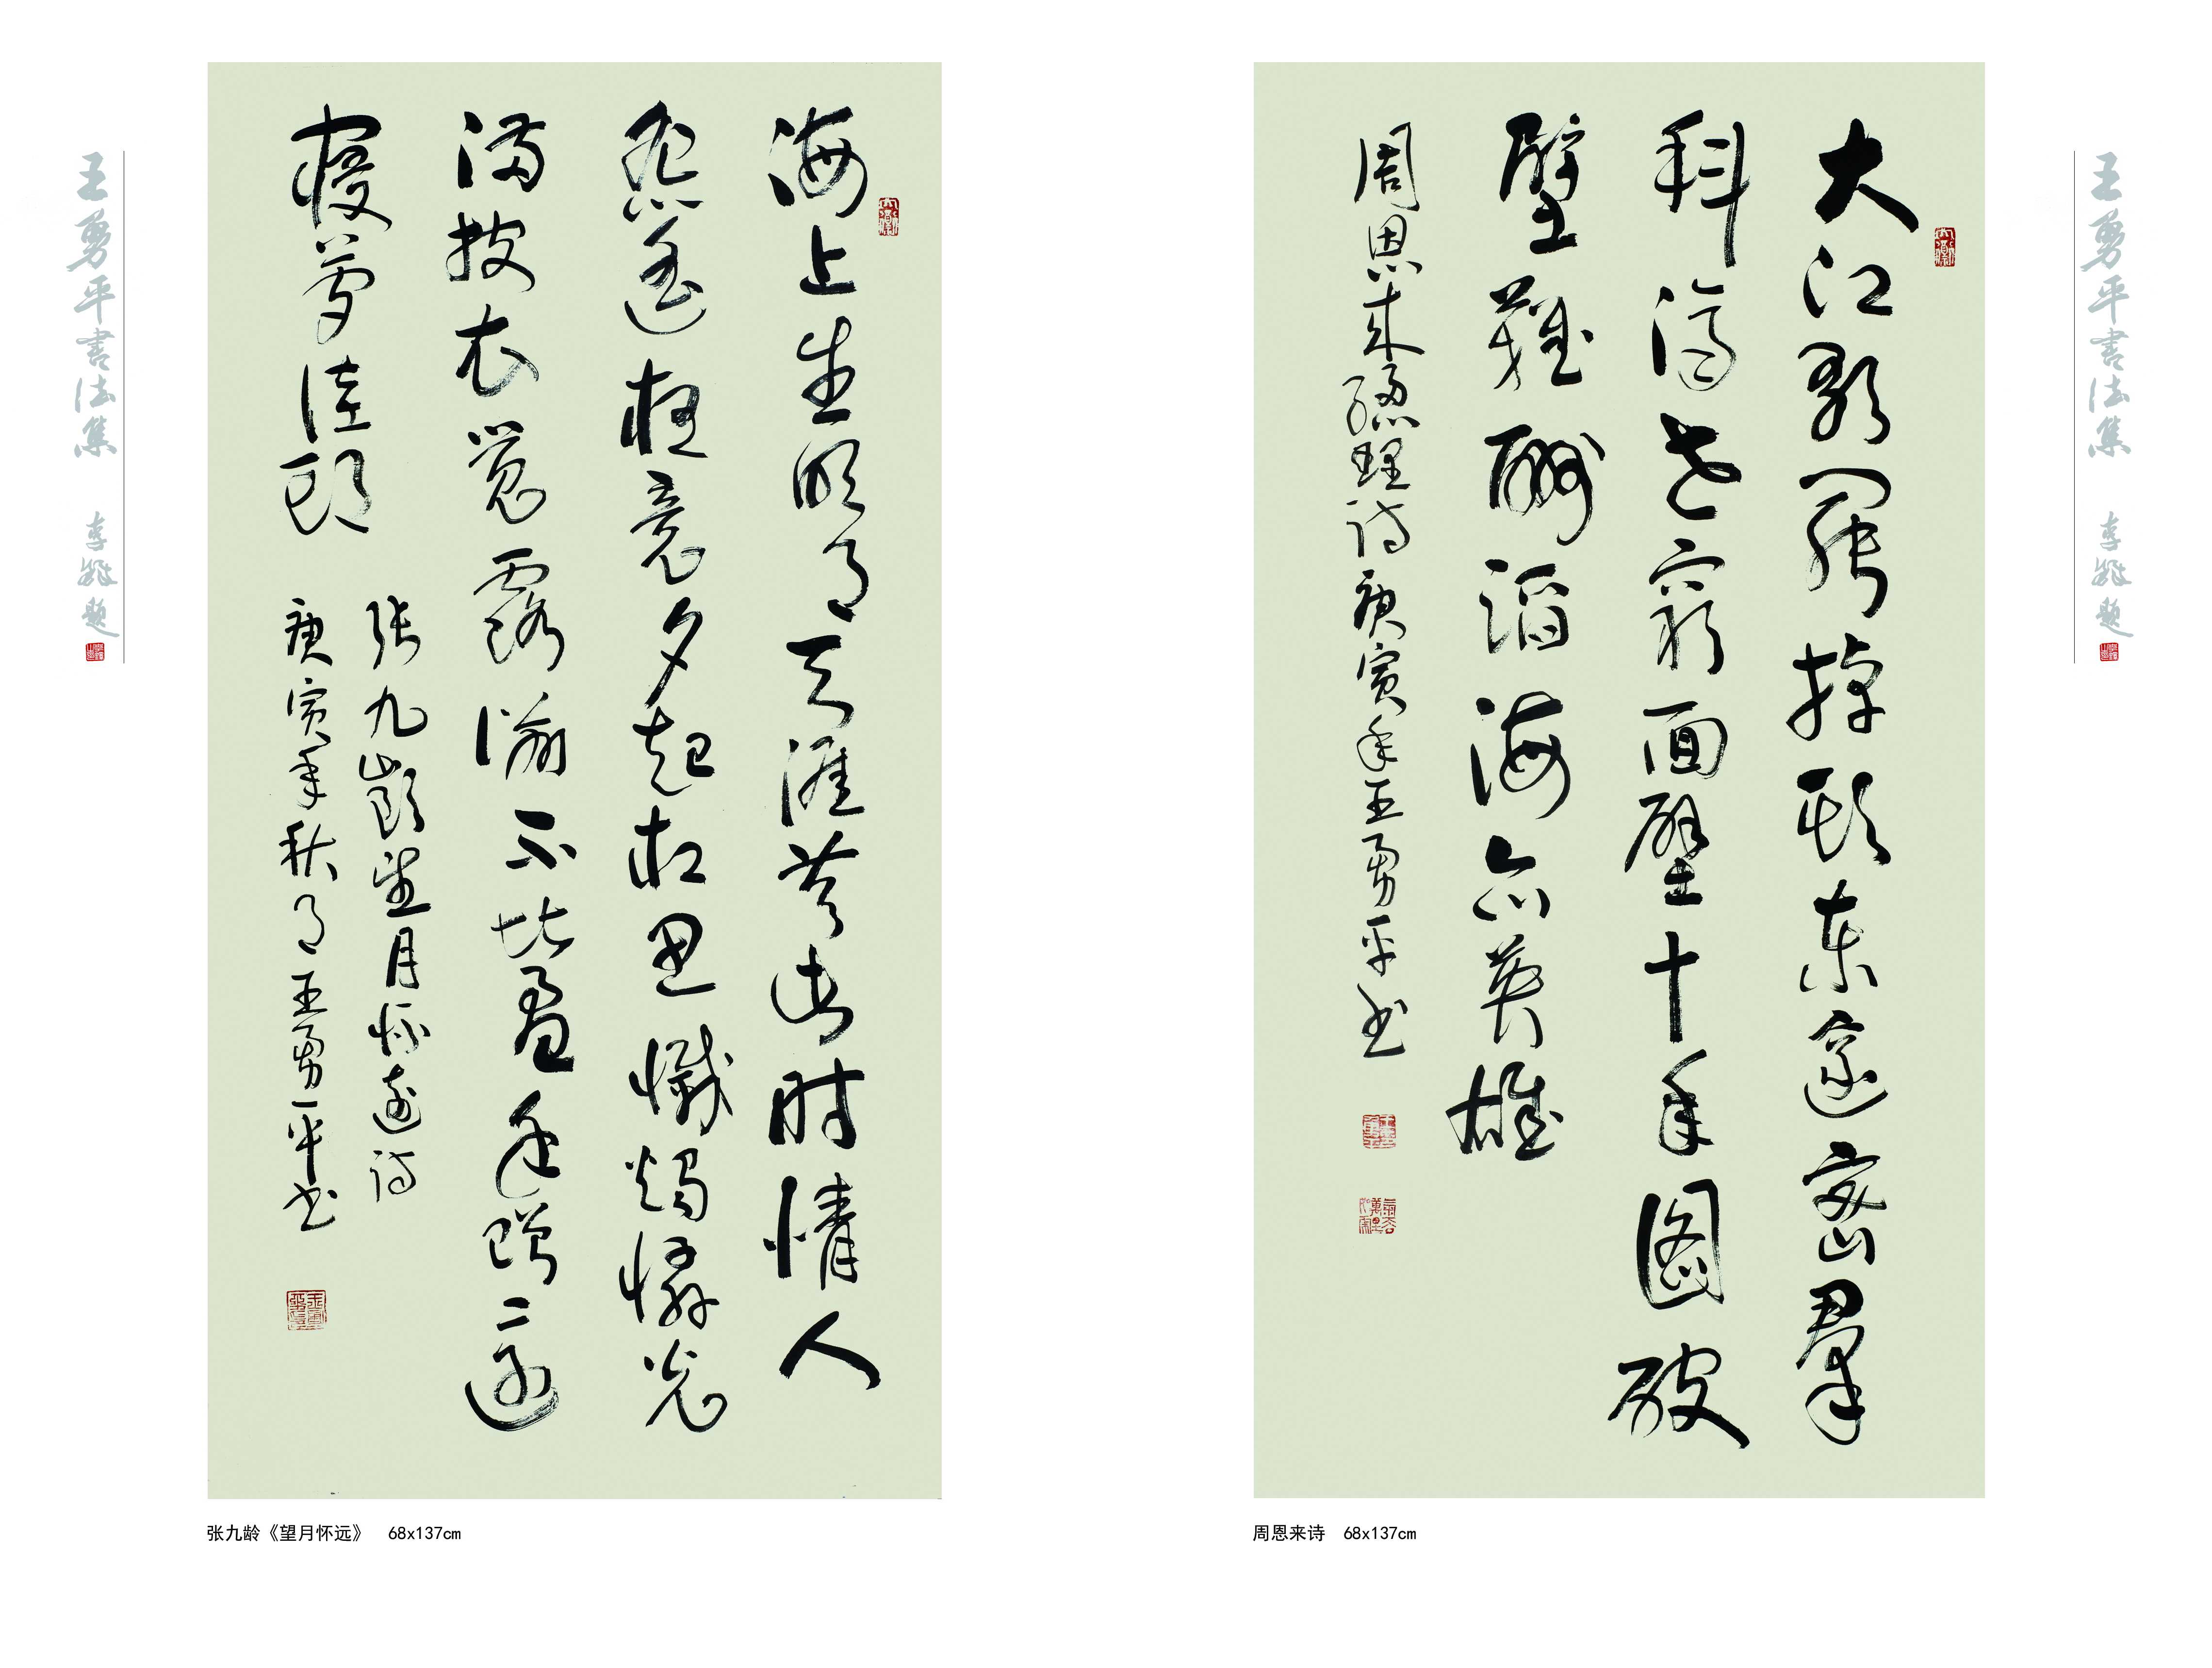 王勇平書法集 李鐸題
海上生明月天涯共此時情人
怨遥夜竟夕起相思滅燭憐光
滿披衣覺露滋不堪盈手贈還
寢夢佳期
張九齡望月懷遠詩
庚寅年秋月王勇平书
张九龄《望月怀远》 68x137cm
大江歌罷掉頭東邃密羣
科濟世窮面壁十年圖破
壁難酬蹈海亦英雄
周恩来總理诗庚寅年王勇平书
周恩来诗 68x137cm
王勇平書法集 李鐸題